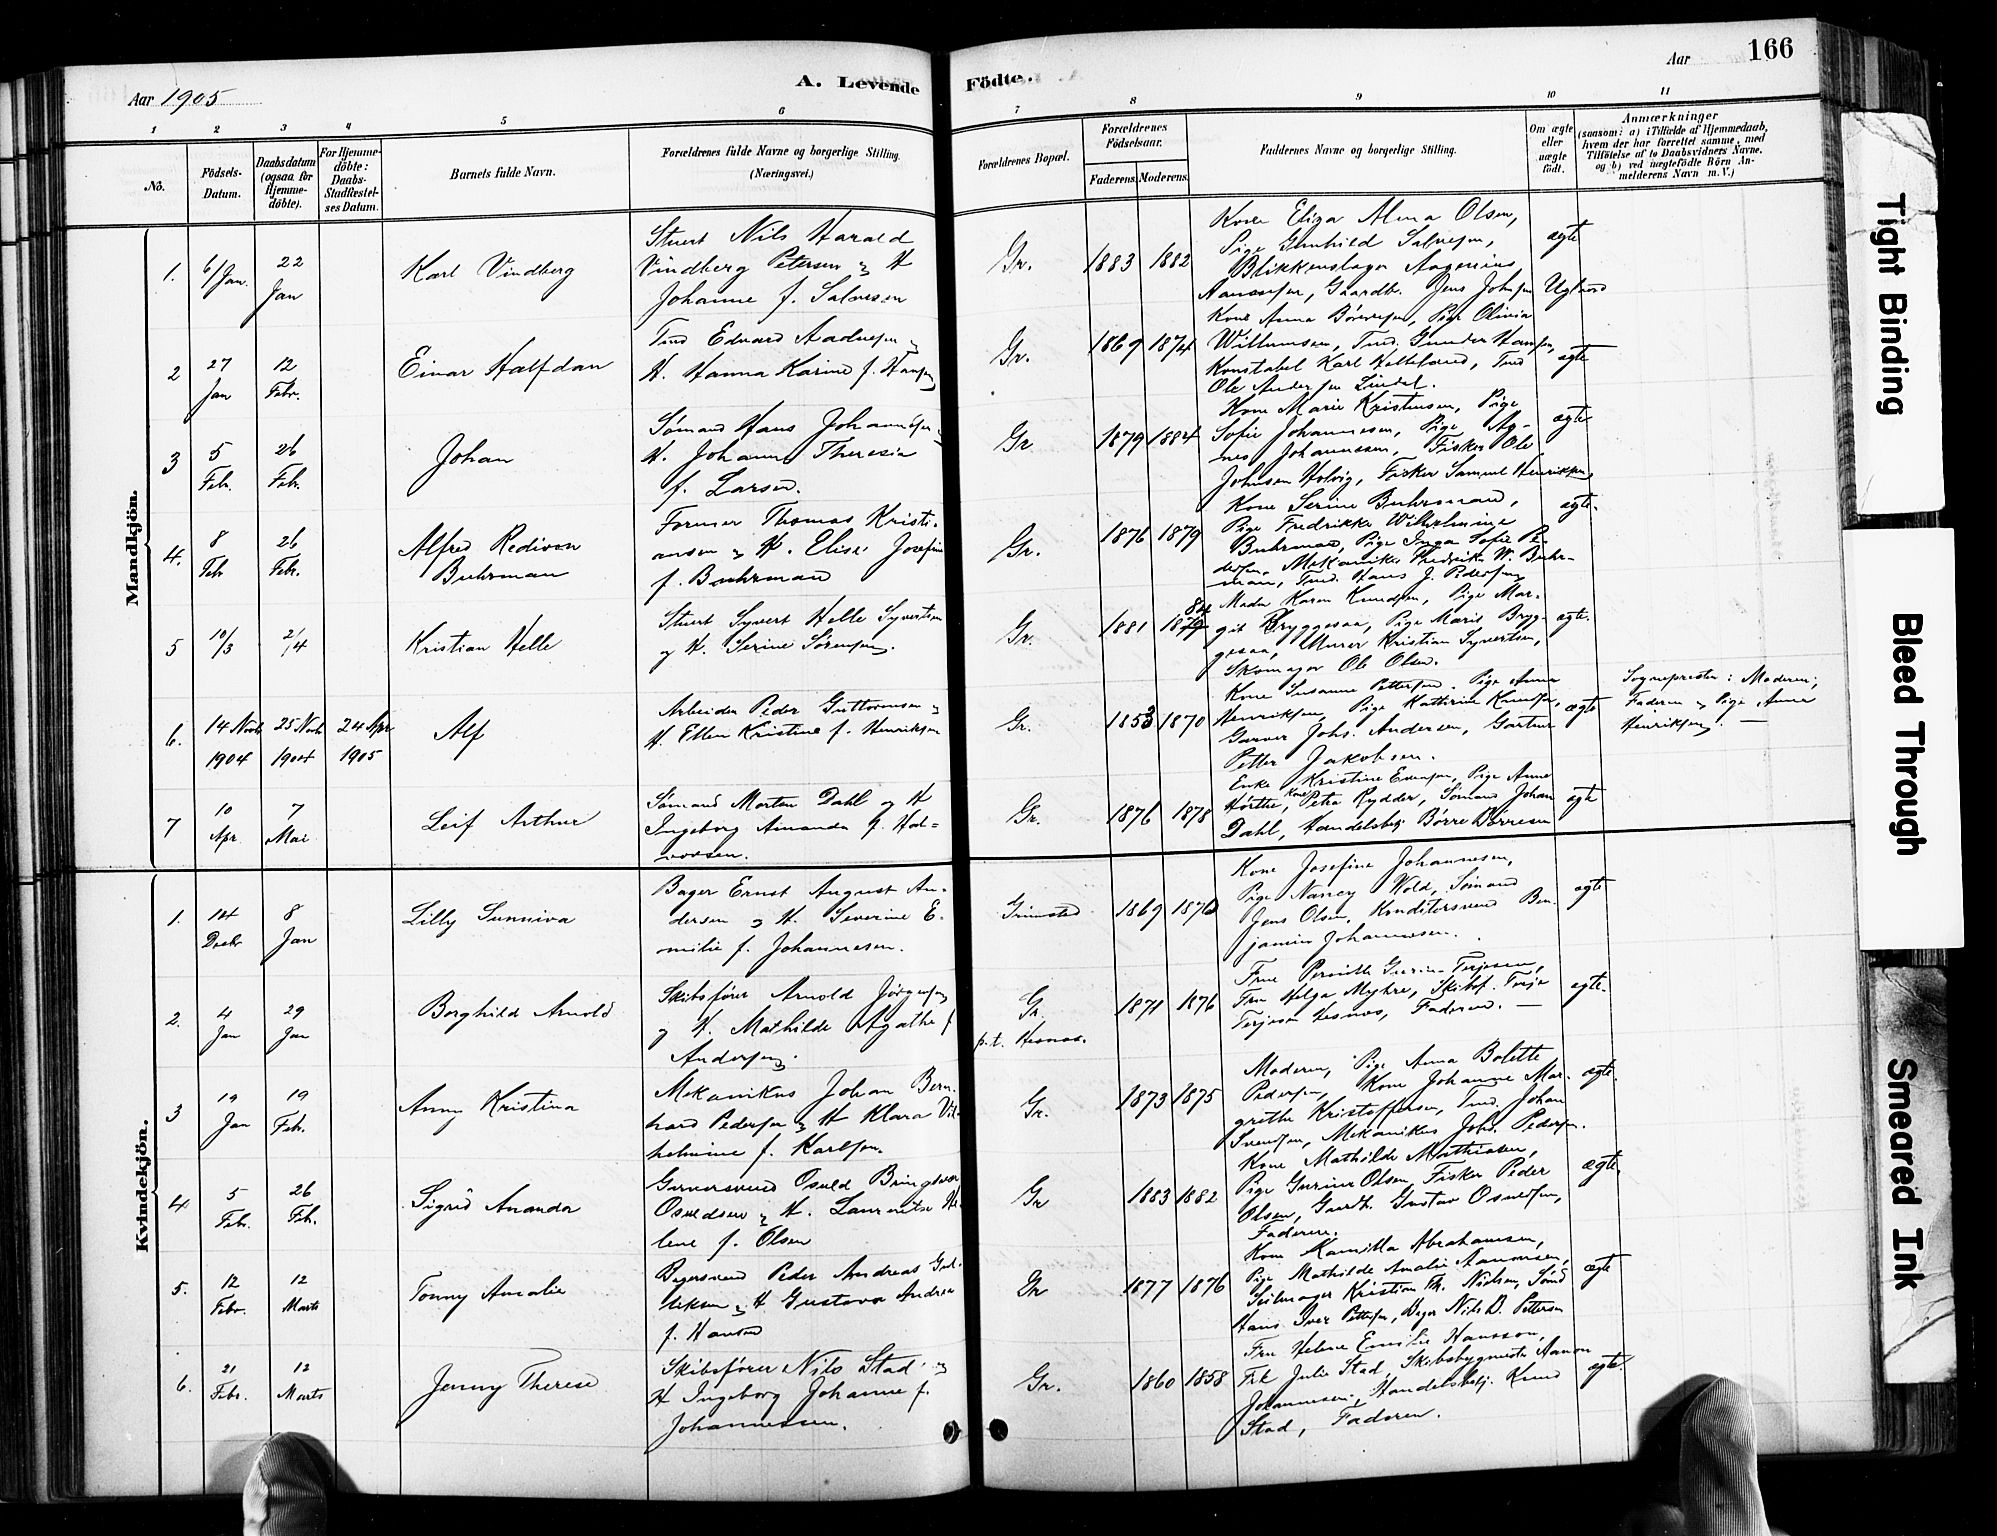 Aar 1905
A. Levende Födte.
Aar 166
1 2 3 4 5 6 7 8 9 10 11
No.
Födsels-Datum.
Daabsdatum (ogsaa for Hjemme-döbte).
For Hjemme-döbte: Daabs-Stadfæstel-ses Datum.
Barnets fulde Navn.
Forældrenes fulde Navne og borgerlige Stilling.
(Næringsvei.)
Forældrenes Bopæl.
Forældrenes Födselsaar.
Faderens. Moderens.
Faddernes Navne og borgerlige Stilling.
Om ægte eller uægte födt.
Anmærkninger
(saasom: a) i Tilfælde af Hjemmedaab,
hvem der har forrettet samme, med
Tilföielse af to Daabsvidners Navne.
og b) ved uægtefödte Börn An-
melderens Navn m. V.)
Mandkjön.
1. 6/Jan. 22 Jan
Karl Vindberg
Stuert Nils Harald
Vindberg Petersen og H
Johanne f. Salvesen
Gr. 1883 1882
Kone Eliza Alma Olsen,
Pige Gunhild Salvesen,
Blikkenslager
Gaardb. Jens Johnsen
ægte
2 27 Jan 12 Febr.
Einar Halfdan
Tmd Edvard Aadnesen og
H. Hanna Karine f. Hansen
Gr. 1869 1874
Kone Anna Børresen, Pige Olivia
Willumsen, Tmd. Gunder Hansen,
Konstabel Karl Helleland, Tmd
Ole Andersen Lindal.
ægte
3 5 Febr. 26 Febr.
Johan
Sømand Hans Johannesen og
H. Johanne Theresia
f. Larsen.
Gr 1879 1884
Kone Marie Kristensen, Pige
Sofie Johannesen, Pige Ag-
nes Johannessen, Fisker Ole
Johnsen Holvig, Fisker Samuel Henriksen
ægte
4. 8 Feb 26 Feb.
Alfred Redivon
Buhrman
Former Thomas Kristi-
ansen og H. Elise Josefine
f. Buhrman
Gr. 1876 1879
Kone Serine Buhrman,
Pige Fredrikke Wilhelmine
Buhrman, Pige Inga Sofie Pe-
dersen, Mekaniker Fredrik W. Buhr-
man, Tmd. Hans J. Pedersen
ægte.
5 10/3 2/4
Kristian Helle
Stuert Syvert Helle Syvertsen
og H. Serine Sørensen.
Gr. 1881 1879 84
Mada Karen Knudsen, Pige Mar-
git Bryggesaa, Pige Maris Bryg-
gesaa, Murer Kristian Syvertsen,
Skomager Ole Olsen.
ægte.
6. 14 Novb 1904 25 Novb 1904 24 Apr 1905
Alf
Arbeider Peder Guttormsen og
H. Ellen Kristine f. Henriksen
Gr. 1853 1870
Kone Susanne Pettersen, Pige Anna
Henriksen, Pige Kathrine Knudsen,
Garver Johs. Andersen, Gartner
Petter Jakobsen.
ægte
Sognepresten: Moderen,
Faderen og Pige Anna
Henriksen. —
7 10 Apr 7 Mai
Leif Arthur
Sømand Morten Dahl og H
Ingeborg Amanda f. Hal-
vorsen.
Gr. 1876 1878
Enke Kristine Evensen, Pige Anne
Kone Petra Rydder, Sømand Johan
Dahl, Handelsbetj. Børre Børresen
ægte
Kvindekjön.
1. 14 Decbr 8 Jan
Lilly Sunniva
Bager Ernst August An-
dersen og H. Severine E-
milie f. Johannesen.
Grimstad 1869 1870
Kone Josefine Johannesen,
Pige Nancy Wold, Sømand
Jens Olsen, Konditorsvend Ben-
jamin Johannesen.
ægte
2. 4 Jan 29 Jan
Borghild Arnold
Skibsfører Arnold Jørgensen
og H. Mathilde Agathe f
Andersen.
Gr.
p.t. Hesnæs.
1871 1876
Frue Pernille Gurine Terjesen,
Fru Helga Myhre, Skibsf. Terje
Terjesen Hesnæs, Faderen. —
ægte.
3 19 Jan 19 Feb.
Anny Kristina
Mekanikus Johan Bern-
hard Pedersen og H Klara Vil-
helmine f. Karlsen.
Gr. 1873 1875
Moderen, Pige Anna Bolette
Pedersen, Kone Johanne Mar-
grethe Kristoffersen, Tmd. Johan
Svendsen, Mekanikus Johs. Pedersen.
ægte.
4 5 Febr. 26 Feb.
Sigrid Ananda
Garversvend Osuld Bringsvær
Osuldsen og H. Laurentze He-
lene f. Olsen
Gr 1883 1882
Kone Mathilde Mathiasen,
Pige Gurine Olsen, Fisker Peder
Olsen, Gaardb. Gustav Osuldsen,
Faderen.
ægte
5. 12 Febr. 12 Marts
Tonny Amalie
Bagersvend Peder Andreas Gul-
liksen og H Gustava Andrea
f. Hansen
Gr 1877 1876
Kone Kamilla Abrahamsen,
Pige Mathilde Amalie Aanonsen,
Seilmager Kristian Th. Nielsen, Sømd
Hans Iver Pettersen, Bager Nils D. Pettersen
ægte
6. 21 Febr. 12 Marts
Jenny Therese
Skibsfører Nils Stad og
H Ingeborg Johanne f.
Johannessen.
Gr. 1860 1858
Fru Helene Emilie Hansson,
Frk Julie Stad, Skibsbygmester Aanon
Johannesen, Handelsbetj. Knud
Stad, Faderen.
ægte
Tight Binding
Bleed Through
Smeared Ink